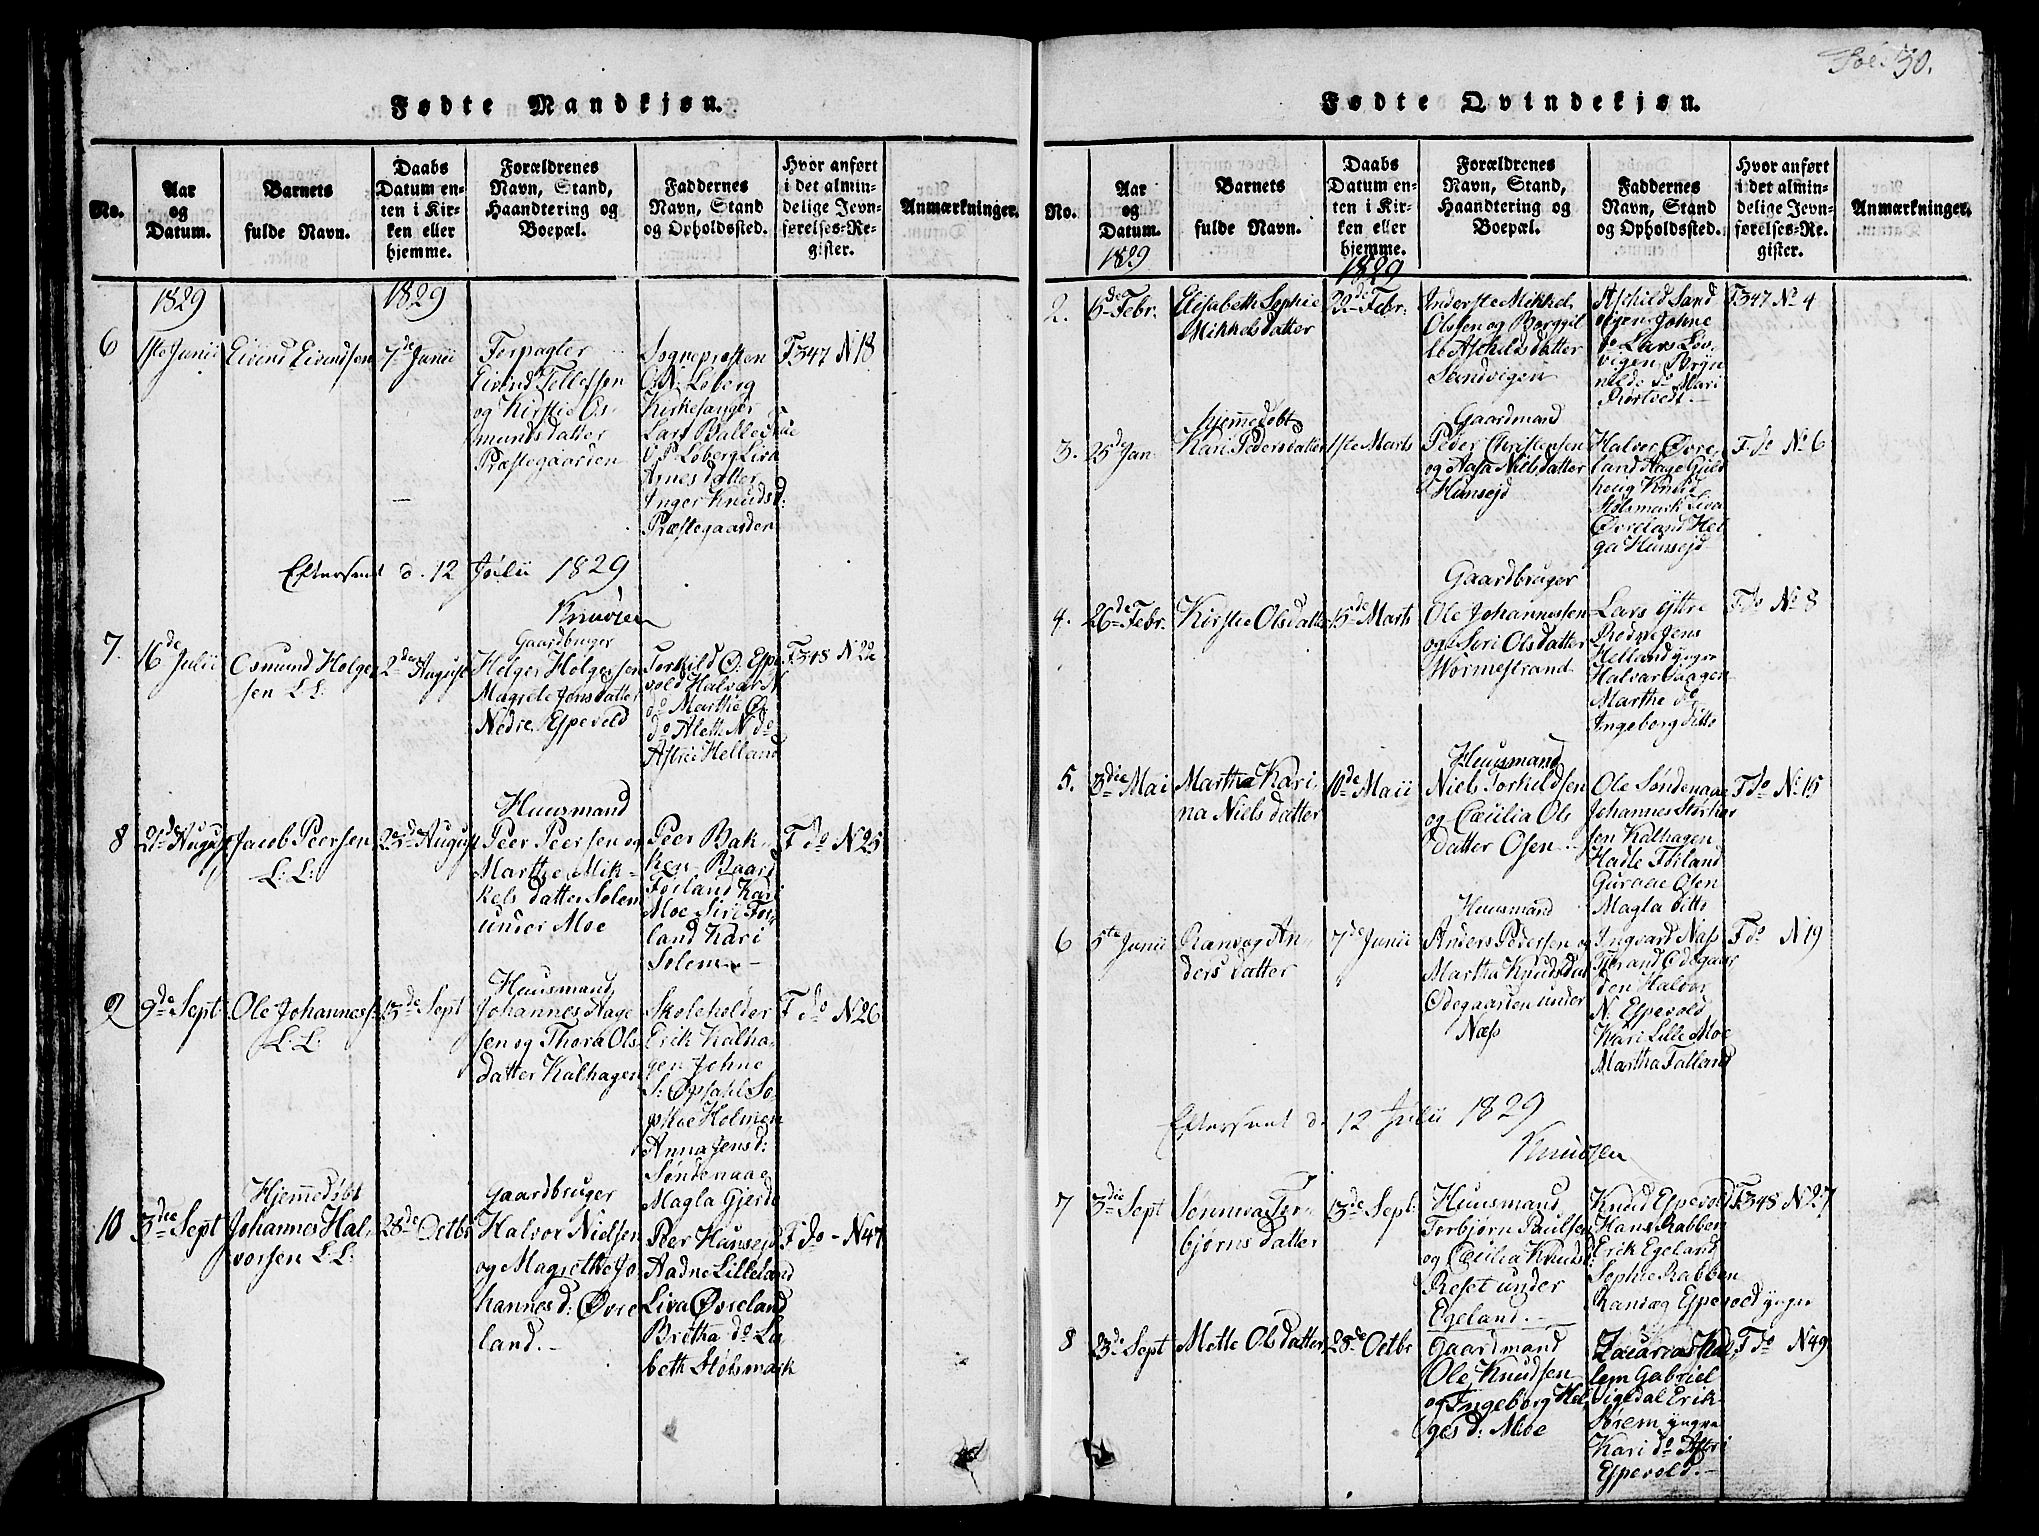 Fol. 30.
Fødte Mandkjøn.
No.
Aar
og
Datum.
Barnets
fulde Navn.
Daabs
Datum en-
ten i Kir-
ken eller
hjemme.
Forældrenes
Navn, Stand,
Haandtering og
Boepæl.
Faddernes
Navn, Stand
og Opholdssted.
Hvor anført
i det almin-
delige Jevn-
førelses-Re-
gister.
Anmærkninger.
1829
1829
6
1ste Junii
Eivind Eivindsen
7de Junii
Forpagter
Eivind Tellefsen
og Kirstie Os-
mundsdatter
Præstegaarden
Sognepræsten
O. N. Løberg
Kirkesanger
Lars Ballestad
O. P. Løberg Liva
Arnesdatter
Inger Knudsd:
Præstegaarden
F 347 N 18
Efterseet d. 12 Julii 1829
Knudzen
7.
16de Julii
Osmund Holger
sen L L:
2den August
Gaardbruger
Helger Holgersen
Magrete Jonsdatter
Nedre Espevold
Torkild Ø. Espe
vold Halvar N
do Marthe Ø.
do Alette N do
Astrie Helland
F 348 N 22
8
21de August
Jacob Peersen
L: L:
23de August
Huusmand
Peer Peersen og
Marthe Mik-
kelsdatter Solem
under Moe
Peer Bak-
ken Baard
Fosland Kari
Moe Siri Fos-
land Kari
Solem
F do N 25
9
9de Sept
Ole Johanness:
L: L:
13de Sept
Huusmand
Johannes Aage
sen og Thora Ols
datter Kalhagen
Skoleholder
Erik Kalha-
gen Johne
S: Opsahl So-
phie Holmen
Anna Jensd:
Søndenaae
Magla Gjerde
F do N 26
10
3die Sept
Hjemmedøbt
Johannes Hal-
vorsen L L:
28de Octbr
Gaardbruger
Halvor Nielsen
og Magrethe Jo
hannesd: Øvre
land.
Peer Hunsejd
Aadne Lilleland
Liva Øvreland
Britha do Li
beth Stølsmark
F do - N 47
Fødte Qvindekjøn.
No.
Aar
og
Datum.
1829
Barnets
fulde Navn.
Daabs
Datum en-
ten i Kir-
ken eller
hjemme.
1829
Forældrenes
Navn, Stand,
Haandtering og
Boepæl.
Faddernes
Navn, Stand
og Opholdssted.
Hvor anført
i det almin-
delige Jevn-
førelses-Re-
gister.
Anmærkninger.
2.
6de Febr.
Elisabeth Sophie
Mikkelsdatter
22de Febr.
Inderste Mikkel
Olssen og Borggil
le Askilsdatter
Sandvigen
Askild Sand
vigen Johne
do Lars Løv
vigen
do Mari
Rørtvedt
F 347 No 4
3.
25de Jan
hjemmedøbt
Kari Pedersdatter
1ste Marts
Gaardmand
Peder Christensen
og Aasa Nielsdatter
Hunsejd
Halvor Øvre-
land Aage Guld
houg Knud
Stølsmark Liva
Øvreland Hel
ga Hunsejd
F do No 6
4.
26de Febr.
Kirstie Olsdatter
15de Marts
Gaardbruger
Ole Johannessen
og Seri Olsdatter
Wormestrand
Lars Yttre
Rødne Jens
Helland ynger
Halvar Saagen
Marthe do
Ingeborg ditto
F do No 8
5.
3die Mai
Martha Kari
na Nielsdatter
10de Maii
Huusmand
Niels Torkildsen
og Cæcilia Ols
datter Osen
Ole Søndenaae
Johannes Størker
sen Kalhagen
Hadle Fosland
Guraae Osen
Magla ditto
F do No 15
6
5te Junii
Ranvog An-
dersdatter
7de Junii
Huusmand
Anders Pedersen og
Martha Knudsdat
Ødegaarden under
Næss
Ingvard Næss
Tbrand Ødegaar
den Halvor
N. Espevold
Kari Lille Moe
Martha Tatland
F do N 19
Efterseet d. 12 Julii 1829
Knudzen
7
3die Sept
Sønneva Tor-
bjørnsdatter
13de Sept:
Huusmand
Torbjørn Paulsen
og Cæcilia Knudsd:
Reset under
Egeland.
Knud Espevold
Hans Rabben
Erik Egeland
Sophie Rabben
Ranvæg Espevold ynger
F 348 N 27
8
3de Sept
Mette Olsdatter
28de Octbr
Gaardmand
Ole Knudsen
og Ingeborg Hel
gesd: Moe
Zacarias
lem Gabriel
Sigedal Erik
Sørem yngre
Kari do Astri
Espevold.
F do N 49